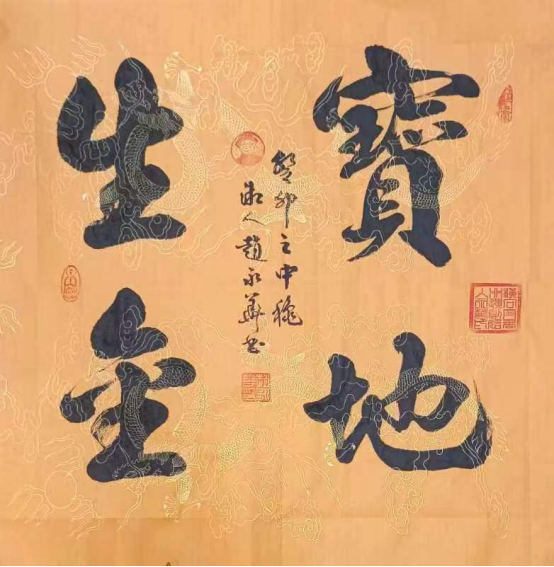 寶地
生金
癸卯之中秋
趙永華書